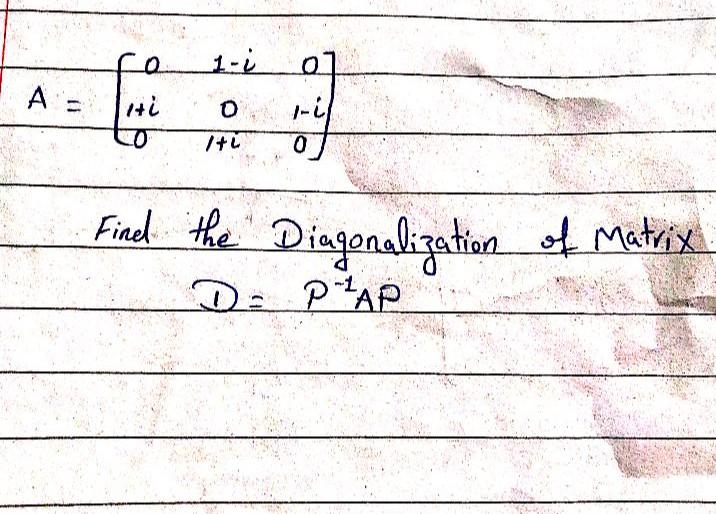 0 1-i 0
A = 1+i 0 1-i
0 1+i 0
Find the Diagonalization of Matrix
D = P⁻¹AP